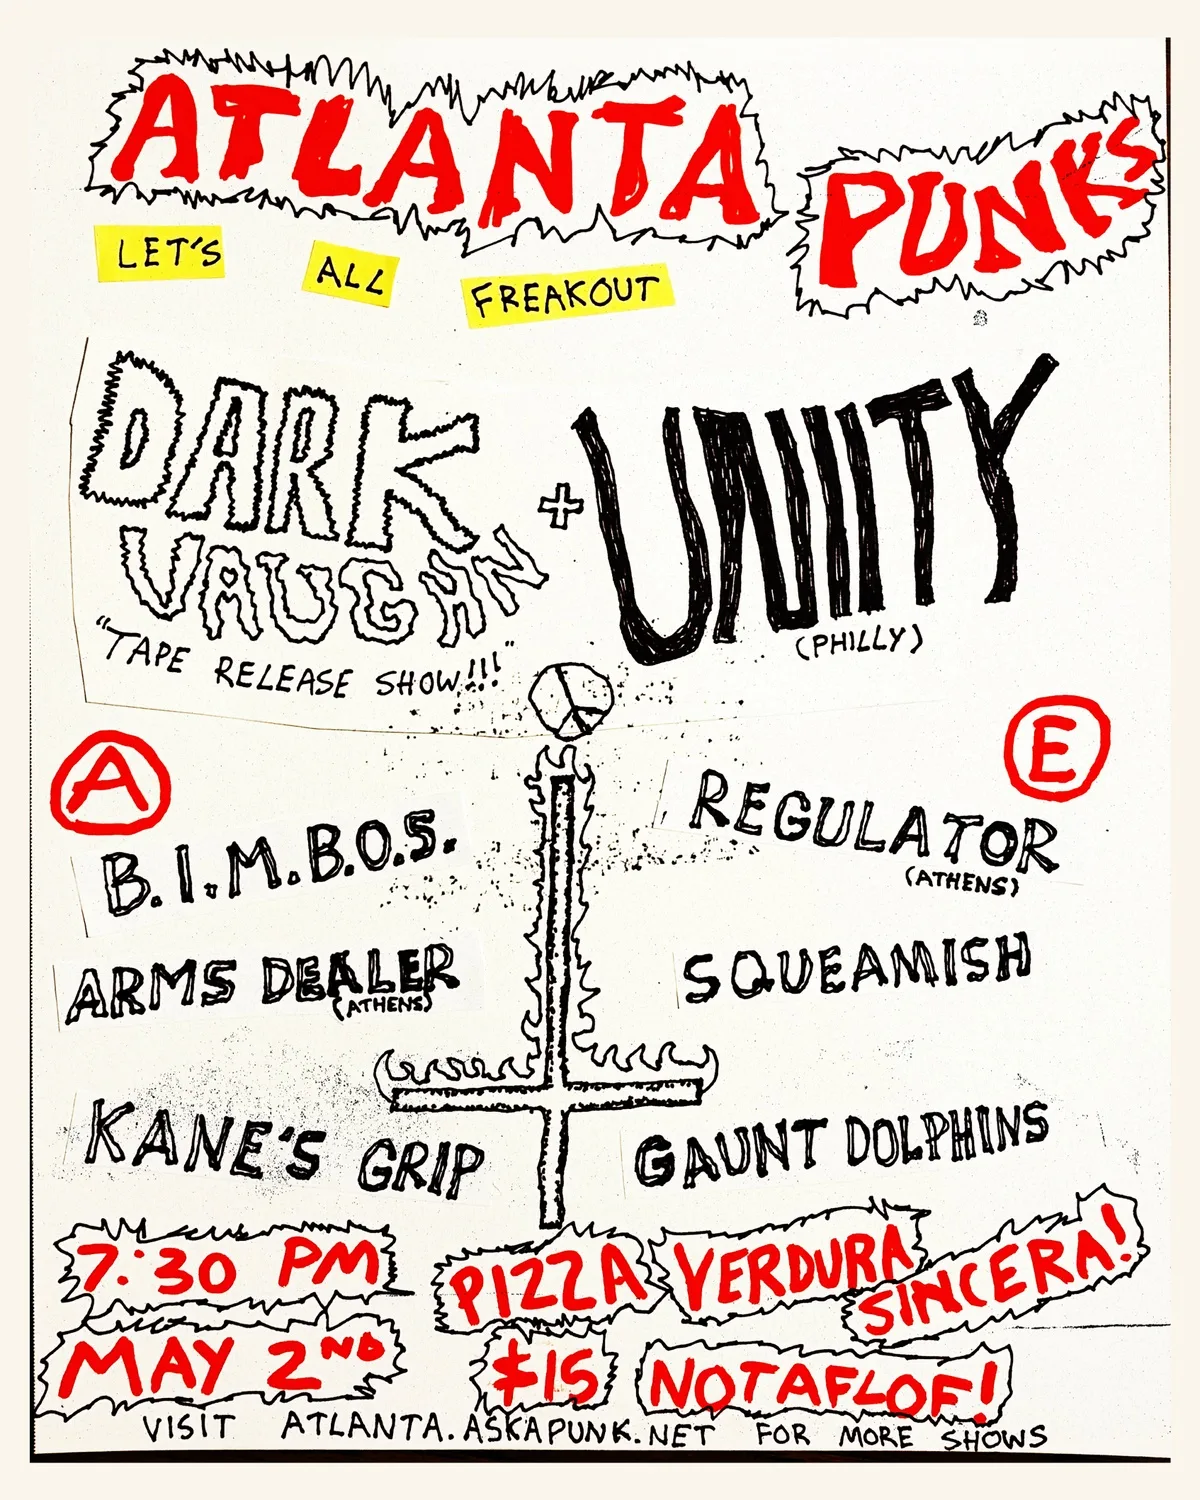 ATLANTA PUNKS
LET'S ALL FREAKOUT
DARK VAUGHN
+
UNITY
"TAPE RELEASE SHOW!!!"
(PHILLY)
A
E
B.I.M.B.O.S.
REGULATOR
(ATHENS)
ARMS DEALER
(ATHENS)
SQUEAMISH
KANE'S GRIP
GAUNT DOLPHINS
7:30 PM
PIZZA VERDURA SINCERA!
MAY 2ND
$15 NOTAFLOF!
VISIT ATLANTA.ASKAPUNK.NET FOR MORE SHOWS